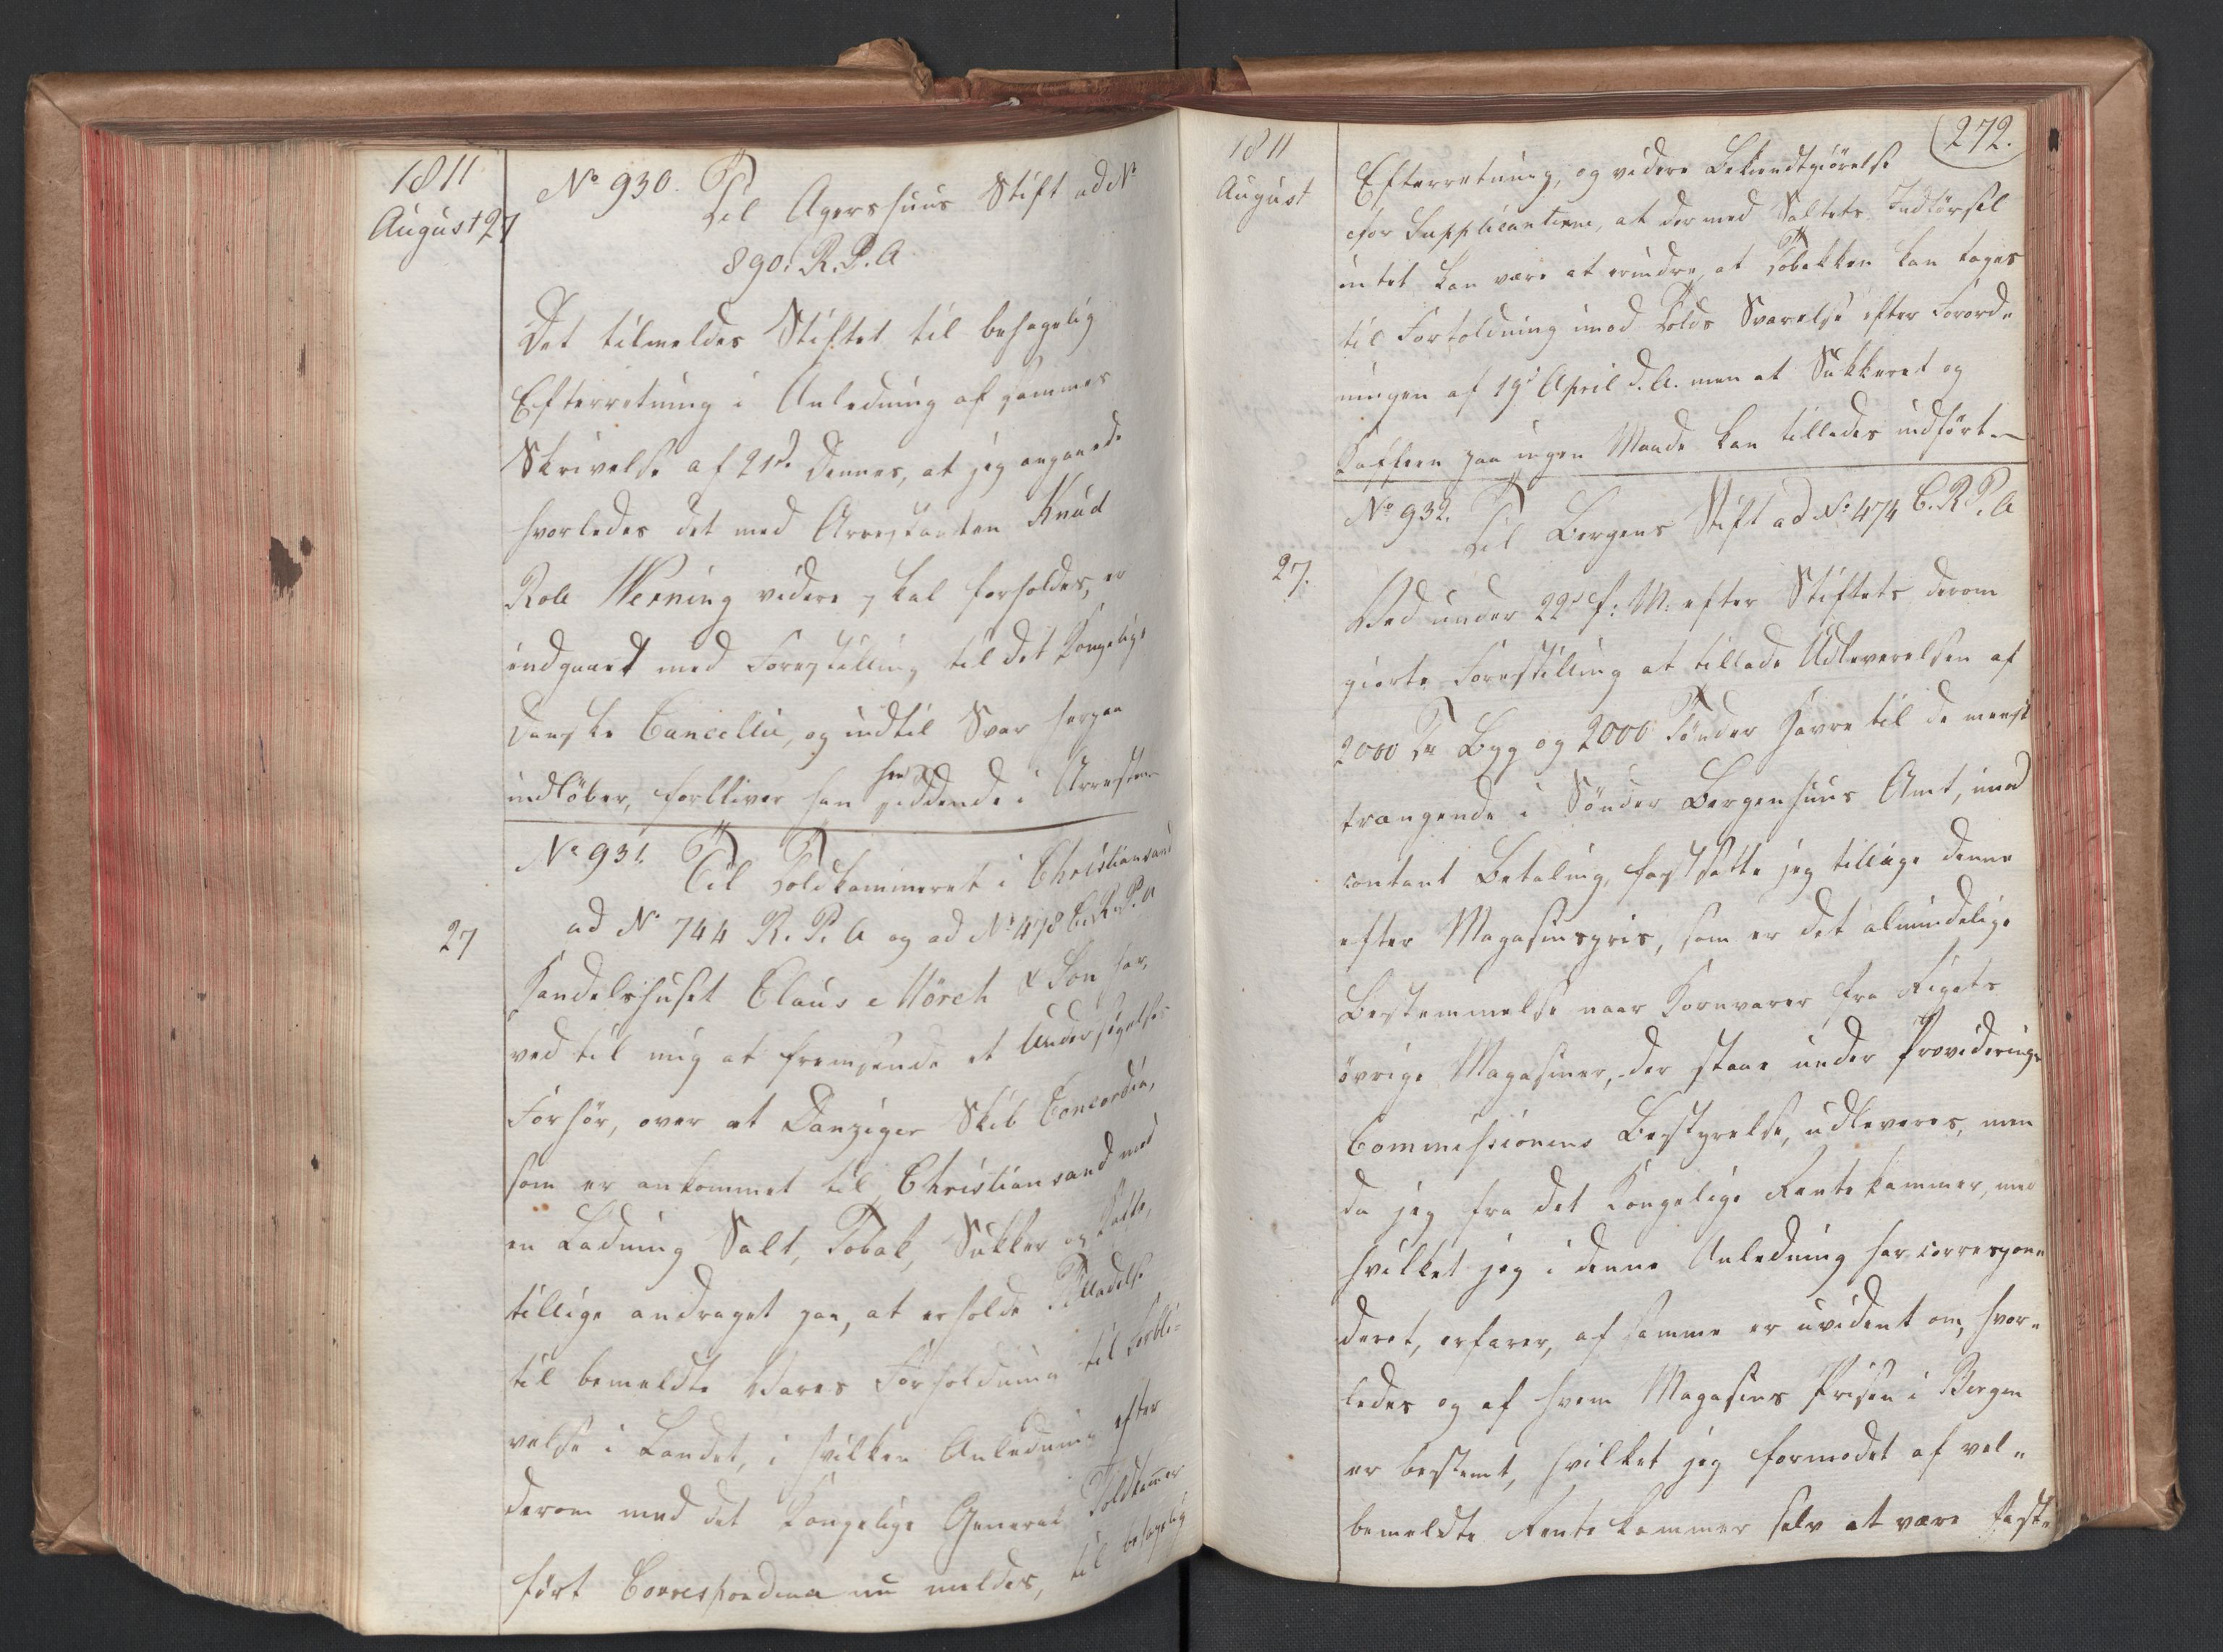 1811
August 27
No 930. Til Agershuus Stift ad No
890. R. P. A
Det tilmeldes Stiftet til behagelig
Efterretning i Anledning af sammes
Skrivelse af 21de dennes, at jeg angaaende
hvorledes det med Arrestanten Knud
Role Werning videre skal forholdes, er
indgaaet med Forestilling til det Kongelige
danske Cancellie, og indtil Svar herpaa
indløber, forbliver han hensiddende i Arresten
No 931. Til Toldkammeret i Christiansand
ad No 744 R. P. A og ad No 478 C. R. P. A
27
Handelshuset Claus Mørch & Søn har,
ved til mig at fremsende et Undersøgelses
Forhør, over et Danziger Skib Concordia,
som er ankommet til Christiansand med
en Ladning Salt, Tobak, Sukker og Kaffe,
tillige andraget paa, at erholde Tilladelse
til bemeldte Vares Fortoldning til Forbli-
velse i Landet, i hvilken Anledning efter
derom med det Kongelige General Toldkammer
ført Correspondence nu meldes, til behagelig
1811
August
272.
Efterretning, og videre Bekiendtgiörelse
for Supplicanterne, at der med Saltets Indførsel
intet kan være at erindre, at Tobakken kan tages
til Fortoldning imod Tolds Svarelse efter Forord-
ningen af 19de April d. A. men at Sukkeret og
Kaffeen paa ingen Maade kan tillades indført.
No 932. Til Bergens Stift ad No 474 C. R. P. A
27.
Ved under 22de f: M: efter Stiftets derom
giorte Forestilling at tillade Udleverelsen af
2000 Tr Byg og 2000 Tønder Havre til de meest
trængende i Sönder Bergenhuus Amt, imod
contant Betaling, fastsatte jeg tillige denne
efter Magasinspris, som er det almindelige
Bestemmelse naar Kornvarer fra Rigets
övrige Magasiner, der staae under Provideringe
Commissionens Bestyrelse, udleveres, men
da jeg fra det Kongelige Rentekammer, med
hvilket jeg i denne Anledning har correspon-
deret, erfarer, at samme er uvidende om, hvor-
ledes og af hvem Magasins Prisen i Bergen
er bestemt, hvilket jeg formodet af vel-
bemeldte Rentekammer selv at være fast-